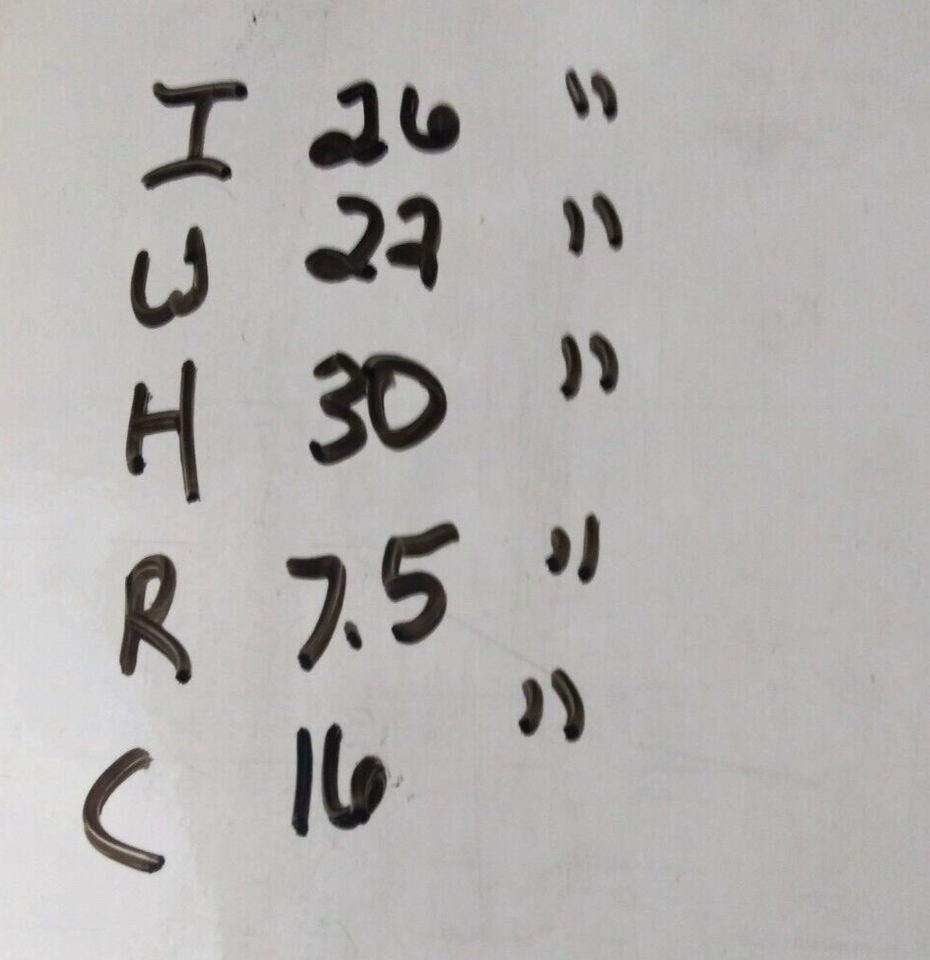 I 26 "
W 27 "
H 30 "
R 7.5 "
C 16 "